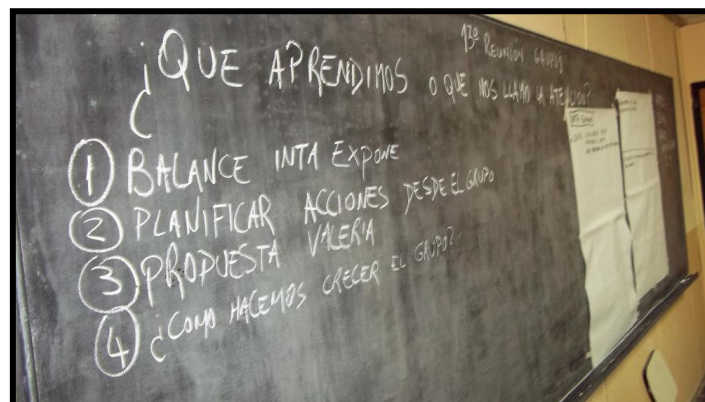 13º REUNIÓN GRUPUS
¿QUE APRENDIMOS O QUE NOS LLAMO LA ATENCION?
① BALANCE INTA EXPONE
② PLANIFICAR ACCIONES DESDE EL GRUPO
③ PROPUESTA VALERIA
④ ¿COMO HACEMOS CRECER EL GRUPO?